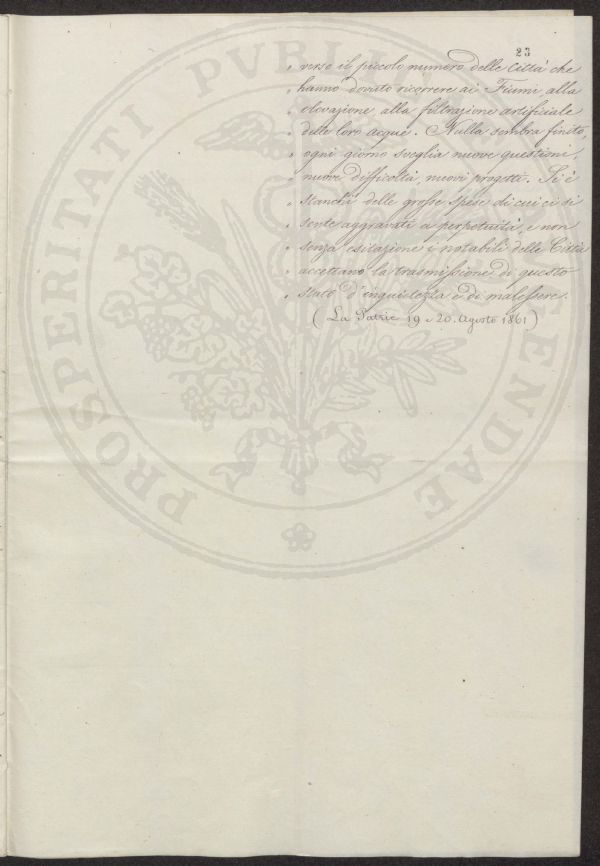 23
„ verso il piccolo numero delle Città che
„ hanno dovuto ricorrere ai Fiumi alla
„ elevazione, alla filtrazione artificiale
„ delle loro acque. Nulla sembra finito,
„ ogni giorno sveglia nuove questioni,
„ nuove difficoltà, nuovi progetti. Si è
„ stanchi delle grosse spese di cui ci si
„ sente aggravati a perpetuità, e non
„ senza esitazione i notabili delle Città
„ accettano la trasmissione di questo
„ stato d'inquietezza e di malessere.
( La Patrie 19 e 20. Agosto 1861 )
PROSPERITATI PVBLICAE AVGENDAE